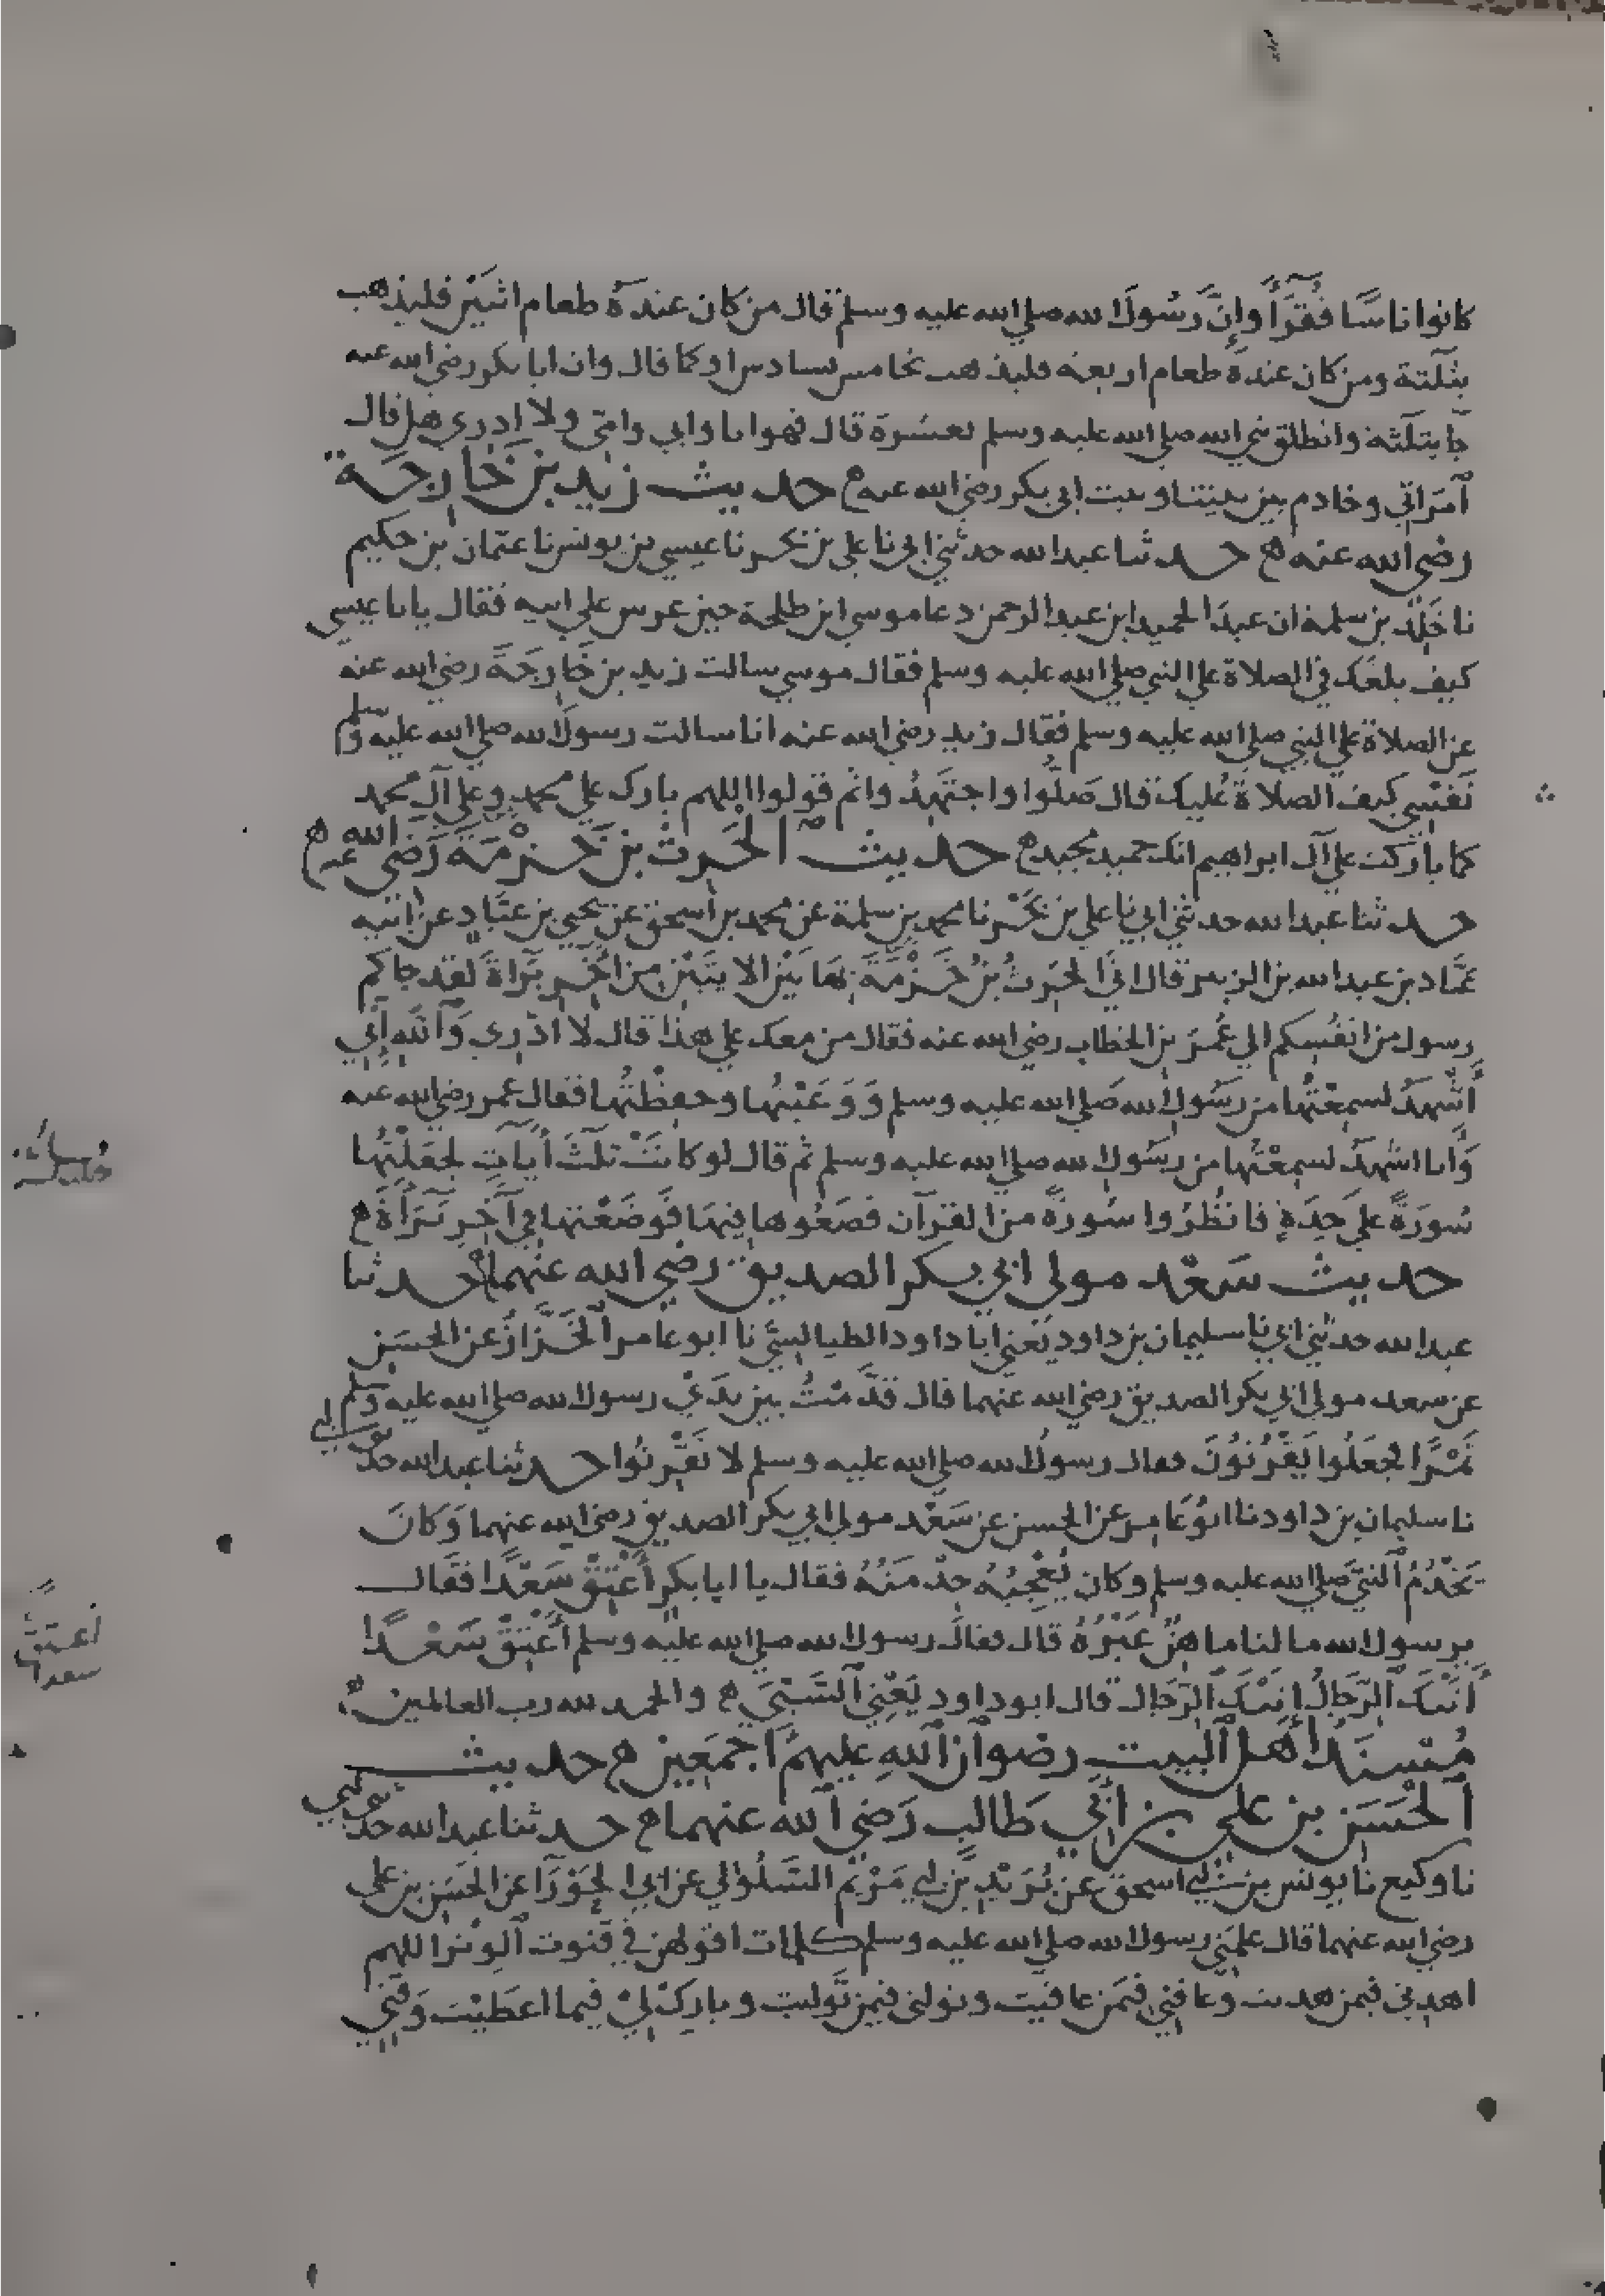 كانوا اناسًا فُقَرَآءً وإنَّ رَسُولَ الله صلى الله عليه وسلم قال من كان عندهُ طعام اثنين فليذهب
بثلثة ومن كان عنده طعام اربعة فليذهب بخامس بسادس او كما قال وان ابا بكر رضى الله عنه
جآ بثلثة وانطلق نبي الله صلى الله عليه وسلم بعشرة قال فهو انا وابي وامّي ولا ادرى هل قال
آمراتي وخادم بين بيتنا وبيت ابي بكر رضى الله عنه ﻫ حديث زيد بن خارجة
رضى الله عنه ﻫ حدثنا عبد الله حدثني ابي نا علي بن بحر نا عيسي بن يونس نا عثمان بن حكيم
نا خلد بن سلمة ان عبد الحميد ابن عبد الرحمن دعا موسي ابن طلحة حين عرس علي ابنه فقال يا ابا عيسي
كيف بلغك في الصلاة علي النبي صلى الله عليه وسلم فقال موسي سالت زيد بن خَارِجَةَ رضى الله عنه
عن الصلاة علي النبي صلى الله عليه وسلم فقال زيد رضى الله عنه انا سالت رسول الله صلى الله عليه وسلم
نَفْسِي كيف الصلاة عليك قال صَلُّوا واجتَهِدُوا ثم قولوا اللهم بارك علي محمد وعلي آل محمد
كما باركت علي آل ابراهيم انك حميد مجيد ﻫ حديث الحَرِث بن خَزْمَةَ رَضى الله عنه ﻫ
حدثنا عبد الله حدثني ابي نا علي بن بَحْر نا محمد بن سلمة عن محمد بن اسحق عن يحيي بن عبّاد عن ابيه
عبّاد بن عبد الله بن الزبير قال اتَي الحَرِثُ بنُ خَزْمَةَ بهَاتَيْن الايتَيْن من اخِرِ بَرَاة لقد جاكم
رسول من انفُسِكم الي عُمَرَ بن الخطاب رضى الله عنه فقال من معك علي هذا قال لا ادْرِي وَاللهِ إنِّي
أشْهَدُ لسمِعْتُها من رَسُول الله صلى الله عليه وسلم وَوَعَيْتُها وحفِظْتُها فقال عمر رضى الله عنه
وَأنا اشهَدُ لسمِعْتُها من رسُول الله صلى الله عليه وسلم ثم قال لو كانَتْ ثَلثَ أيَاتٍ لجعَلْتُها
سُورَةً علَي حِدَةٍ فانظُرُوا سُورةً من القرآن فضَعُوها فيهَا فَوضَعْتها في آخِرِ بَرَأَةَ ﻫ
حديث سَعْد مولي ابي بكر الصديق رضى الله عنهما حدثنا
عبد الله حدثني ابي نا سليمان بن داود يَعْني ابا داود الطيالسيّ نا ابو عامر الخَزَّازُ عن الحسَن
عن سعد مولي ابي بكر الصديق رضى الله عنهما قال قَدَّمْتُ بين يدَيْ رسول الله صلى الله عليه وسلم
تَمْرًا فجعَلُوا يَقْرُنُونَ فقال رسول الله صلى الله عليه وسلم لا تَقْرِنُوا حدثنا عبد الله حدثني ابي
نا سليمان بن داود نا ابُو عَامر عن الحسن عن سَعْد مولي ابي بكر الصديق رضى الله عنهما وَكانَ
يَخْدُمُ النبيَّ صلى الله عليه وسلم وكان يُعْجِبُهُ خِدْمَتُهُ فقال يا ابا بكرٍ أعْتِقْ سَعْدًا فقَال
يرسول الله ما لنا ماهِنٌ غَيْرُهُ قال فقال رسول الله صلى الله عليه وسلم أعْتِقْ سَعْدًا
أتَتْكَ الرّجَالُ اتَتْكَ الرّجَال قال ابو داود يَعْنِي السَّبْيَ ﻫ والحمد لله رب العالمين
مُسْنَدُ أهل البيت رضوان اللهِ عليهم اجمَعِين ﻫ حديث
الحسَن بن علي بن ابي طَالبٍ رَضى الله عنهما ﻫ حدثنا عبد الله حدثني ابي
نا وكيع نا يونس بن ابي اسحق عن بُرَيْدِ بن ابي مَرْيَم السَّلُولي عن ابي الحَوْرَآ عن الحسَن بن علي
رضى الله عنهما قال علمَني رسول الله صلى الله عليه وسلم كلمات اقولهن في قنوت الوتر اللهم
اهدِنى فيمن هديت وعَافِني فيمَن عافيت وتولنى فيمن تَوليت وباركْ ليْ فيما اعطَيْت وَقني
أعتق
سعدا